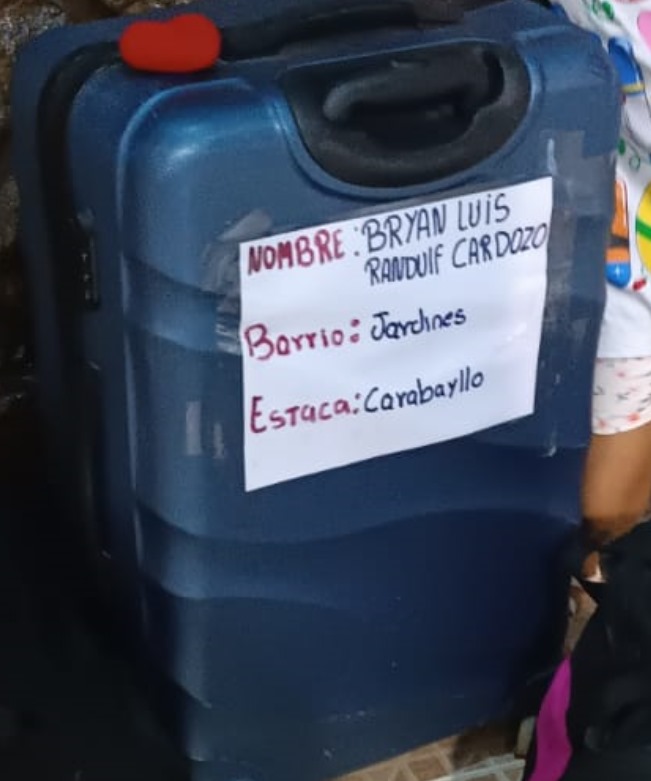 NOMBRE: BRYAN LUIS
RANDUIF CARDOZO
Barrio: Jardines
ESTACA: Carabayllo